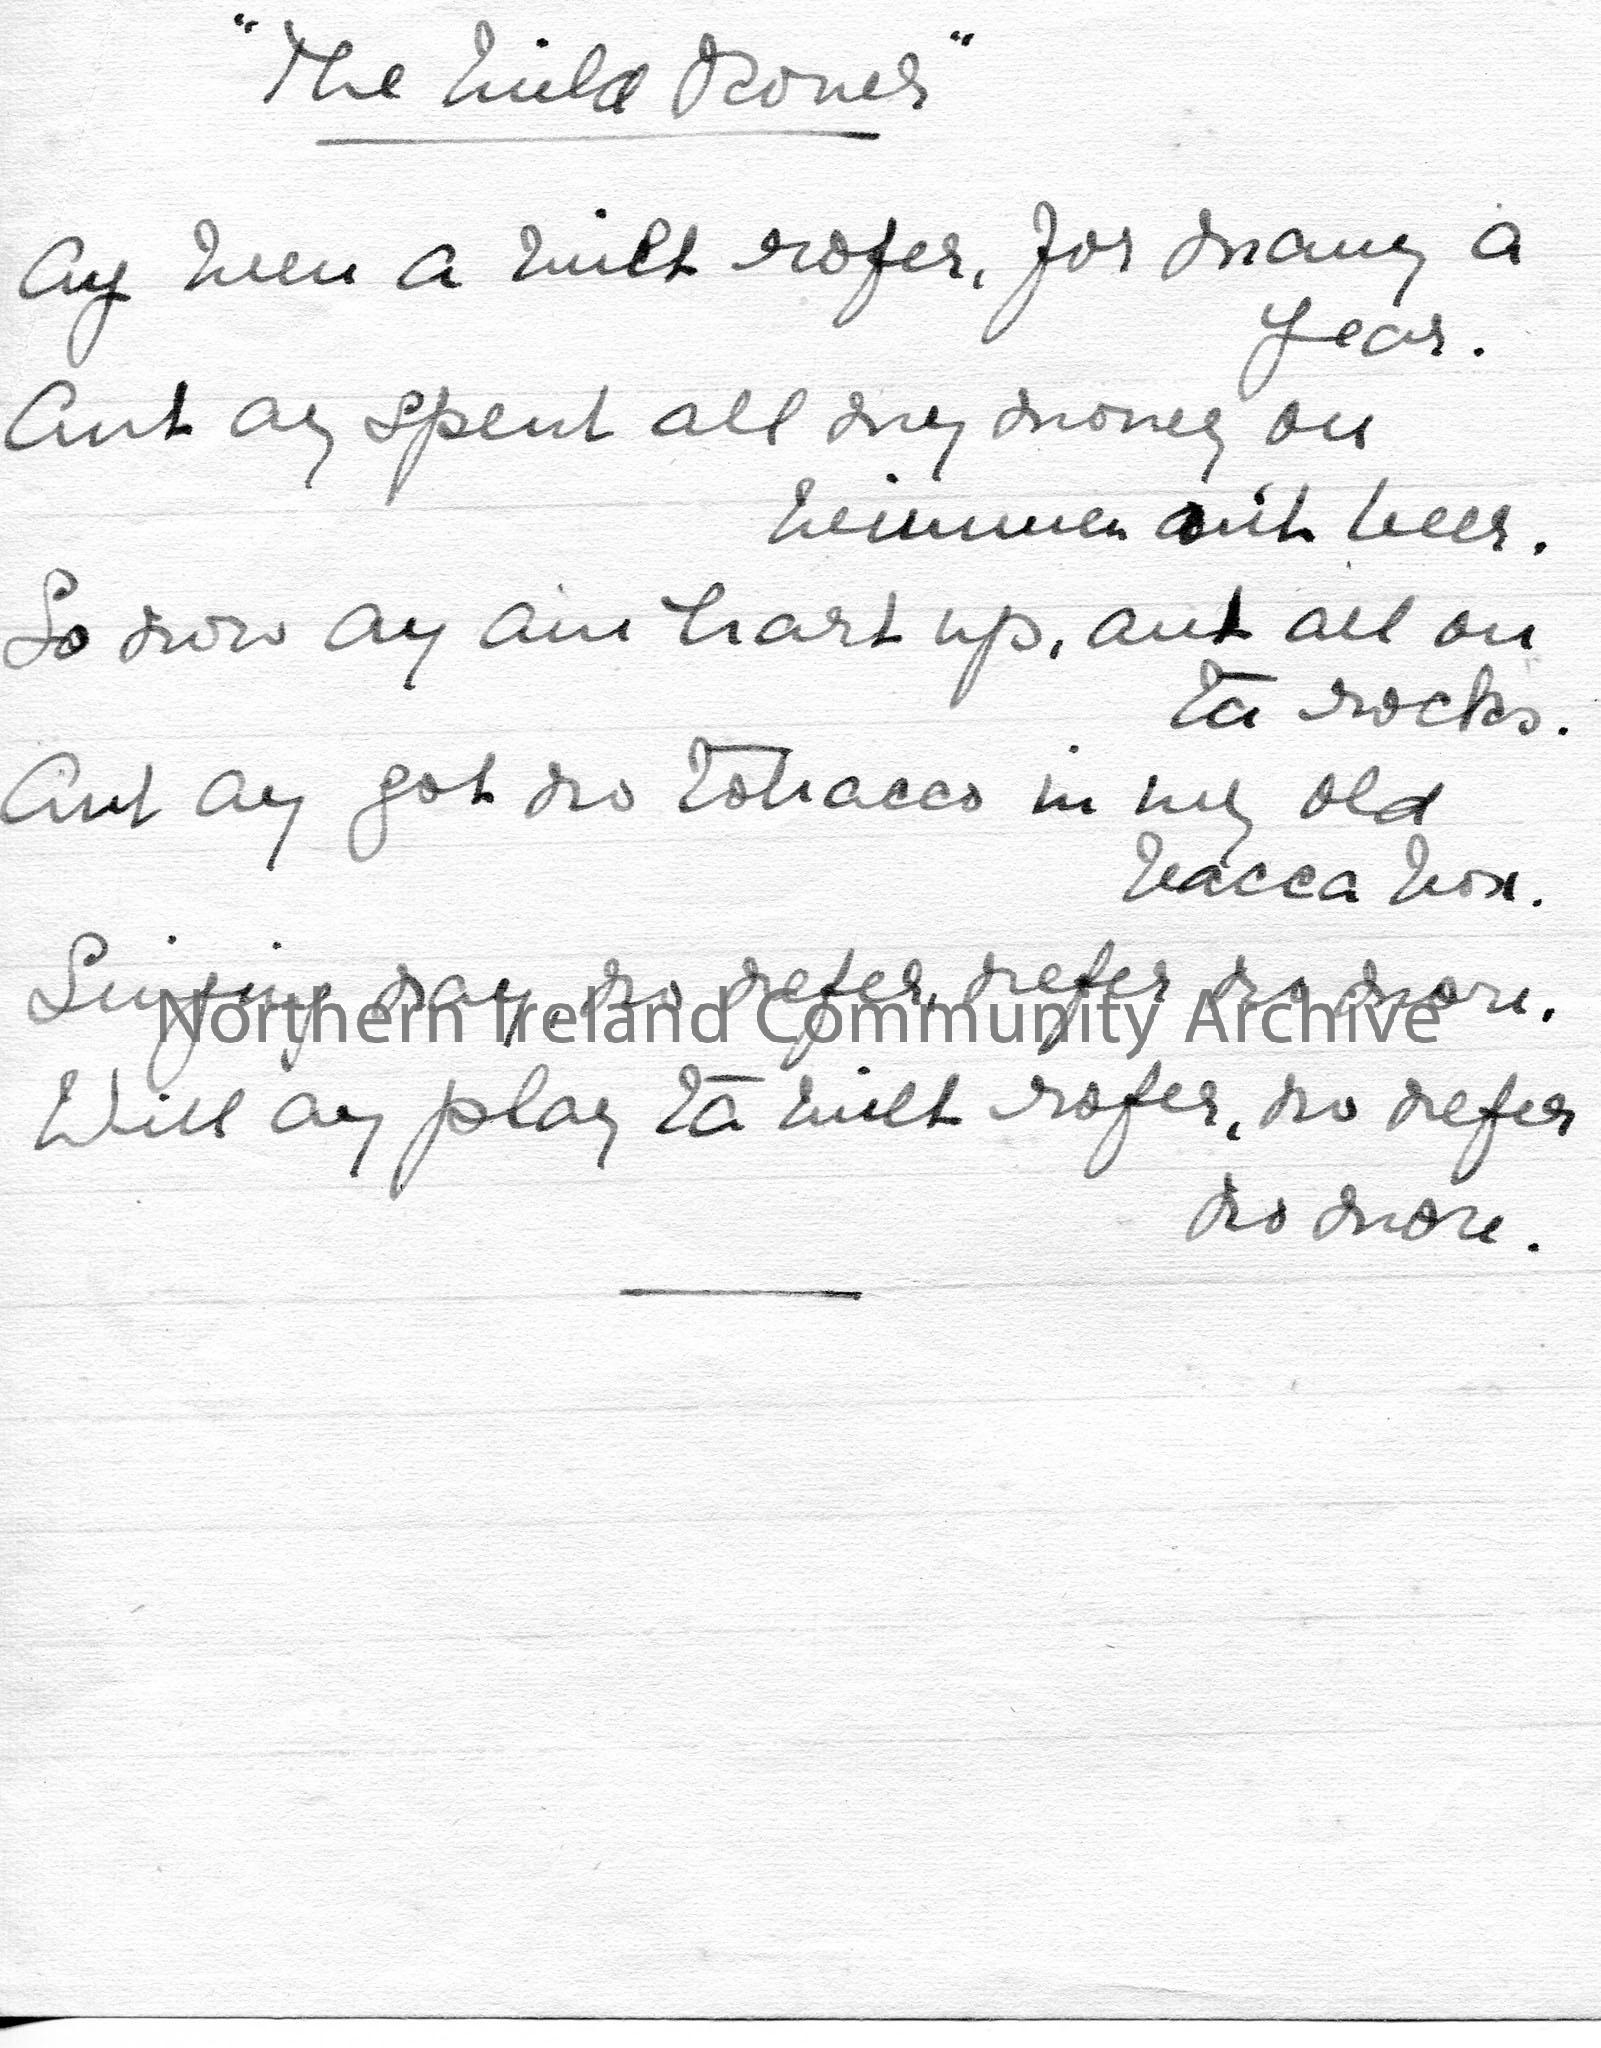 "The Wild Rover"
Ay been a wilt rofer, for many a
year.
Ant ay spent all my money on
weimmen ant beer.
So now ay aim hart up, ant all on
ta rocks.
Ant ay got no tobacco in my old
bacca box.
Singing nay, no nefer, nefer no more.
Northern Ireland Community Archive
Will ay play ta wilt rofer, no nefer
no more.